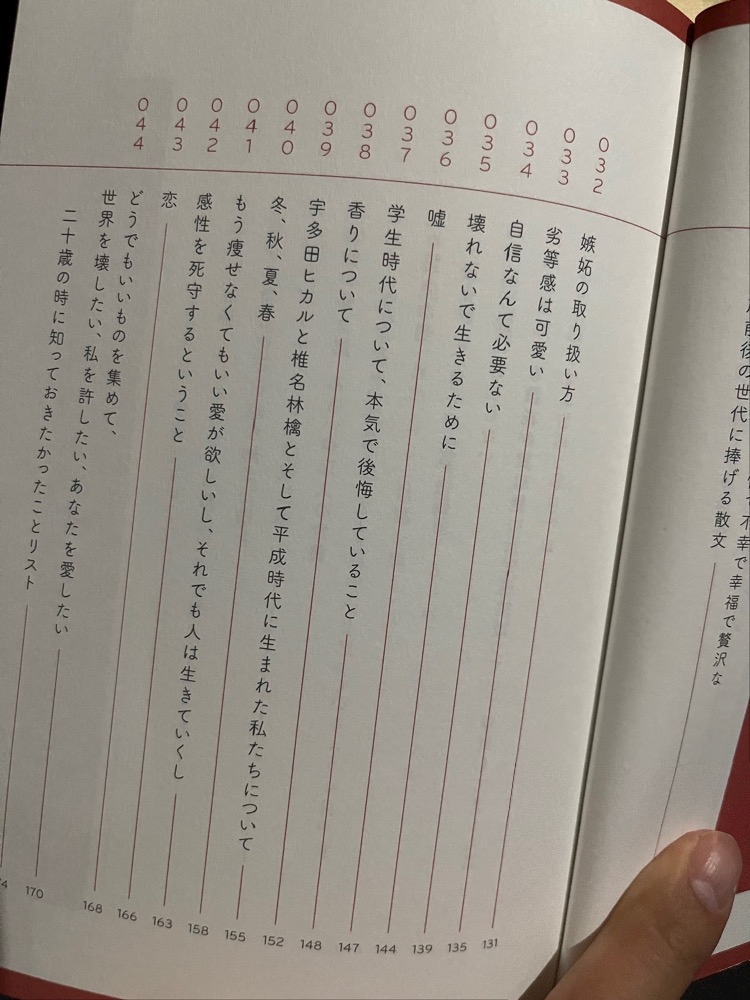 不幸で幸福で贅沢な
前後の世代に捧げる散文
032 嫉妬の取り扱い方 131
033 劣等感は可愛い 135
034 自信なんて必要ない 139
035 壊れないで生きるために 144
036 嘘 147
037 学生時代について、本気で後悔していること 148
038 香りについて 152
039 宇多田ヒカルと椎名林檎とそして平成時代に生まれた私たちについて 155
040 冬、秋、夏、春 158
041 もう痩せなくてもいい愛が欲しいし、それでも人は生きていくし 163
042 感性を死守するということ 166
043 恋 168
044 どうでもいいものを集めて、
世界を壊したい、私を許したい、あなたを愛したい 170
二十歳の時に知っておきたかったことリスト